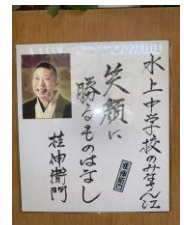 水上中学校のみなさん江
笑顔に
勝るものはなし
桂伸衛門